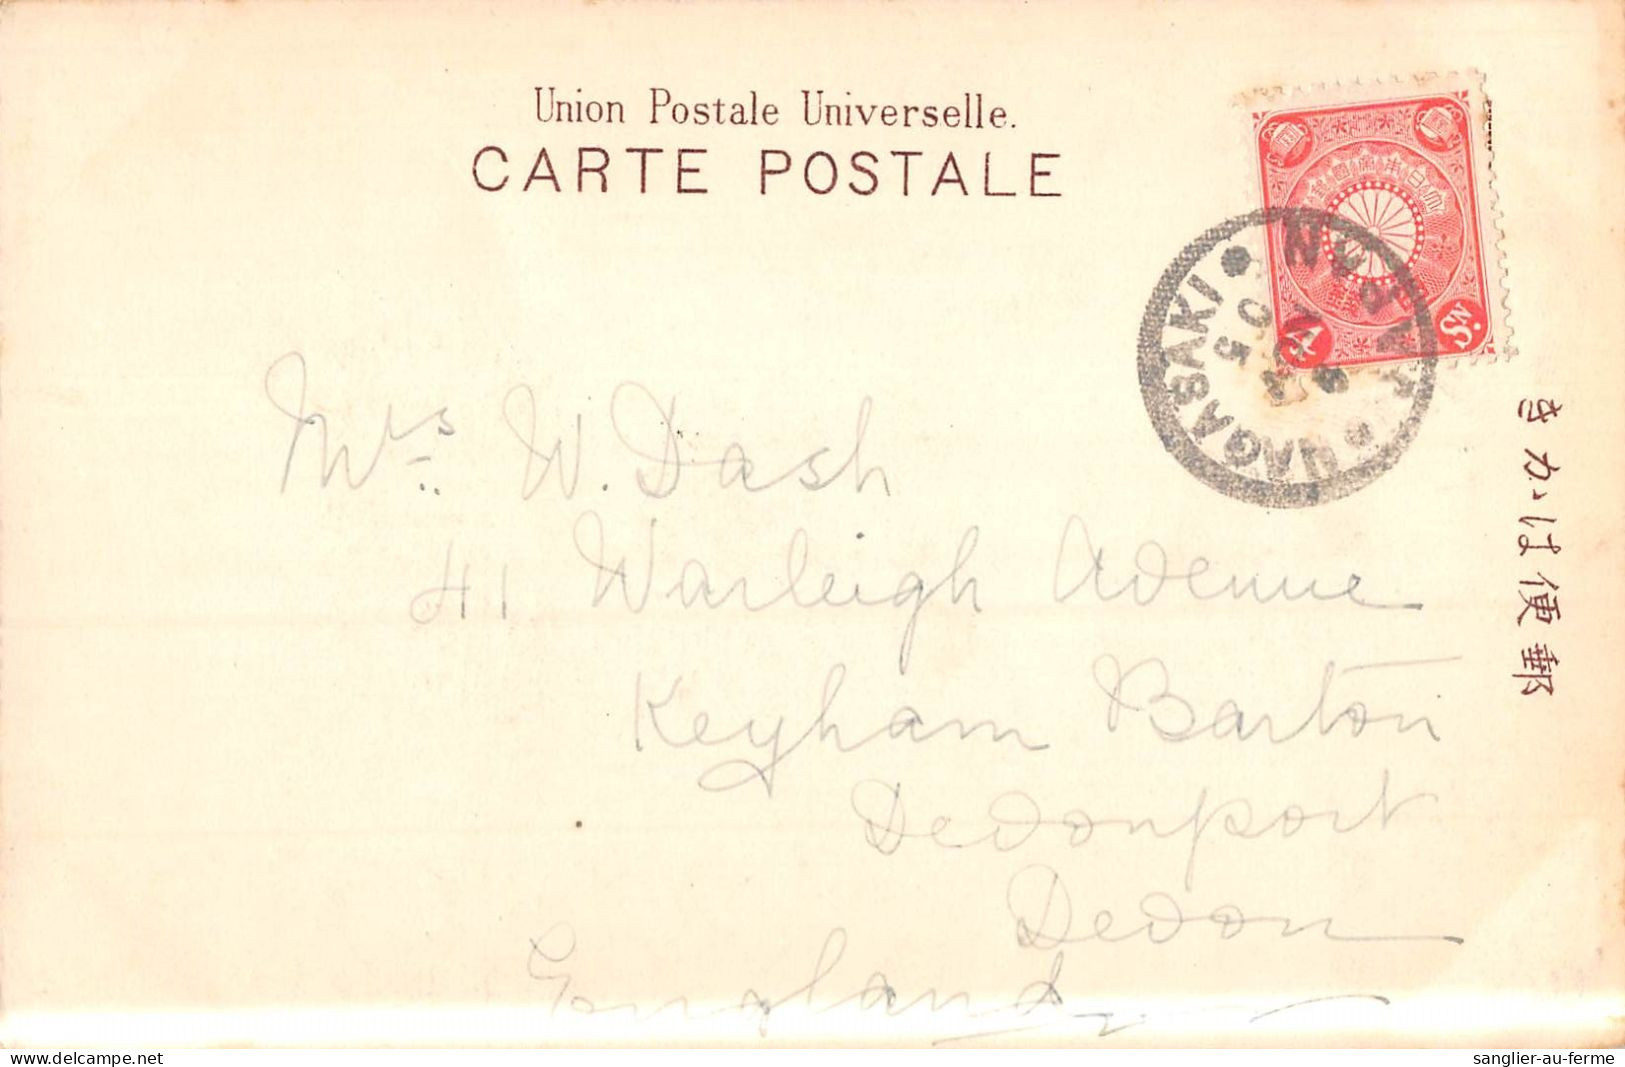 Union Postale Universelle.
CARTE POSTALE
4
Sn.
NAGASAKI
郵便はがき
Mrs. W. Dash
41 Warleigh Avenue
Keyham Barton
Devonport
Devon
England
delcampe.net
sanglier-au-ferme